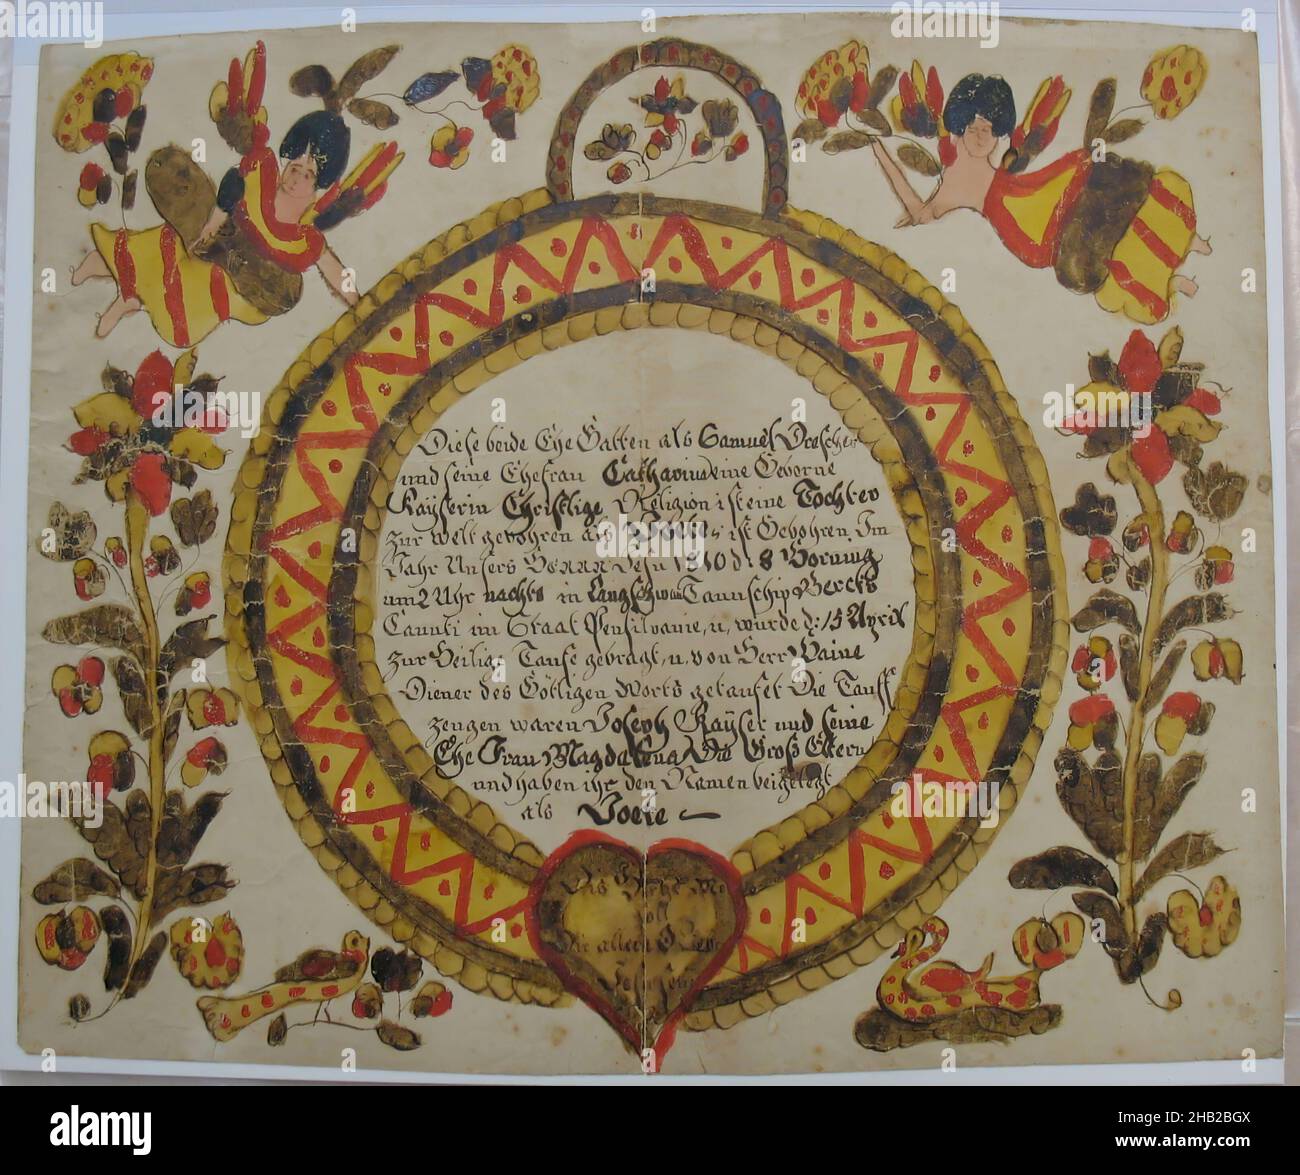 Diese beide Ehe Gatten als Samuel Drescher
und seine Ehefrau Catharina eine Geborne
Kayserin Christlige Religion ist eine Tochter
zur welt gebohren als ist Gebohren Im
Jahr Unsers Herrn Jesu 1810 d: 8 Hornung
um 2 Uhr nachts in Langschwam Taunschip Bercks
Caunti im Staat Pensilvanie, u, wurde d: 15 Apryl
zur Heilige Taufe gebragt, u, von Herr Waine
Diener des Göttligen Worts getaufet Die Tauff
zeugen waren Joseph Kayser und seine
Ehe Frau Magdalena Die Groß Eltern
und haben ihr den Namen beigelegt
als
Die allein
alamy
2HB2BGX
Image ID: 2HB2BGX
www.alamy.com